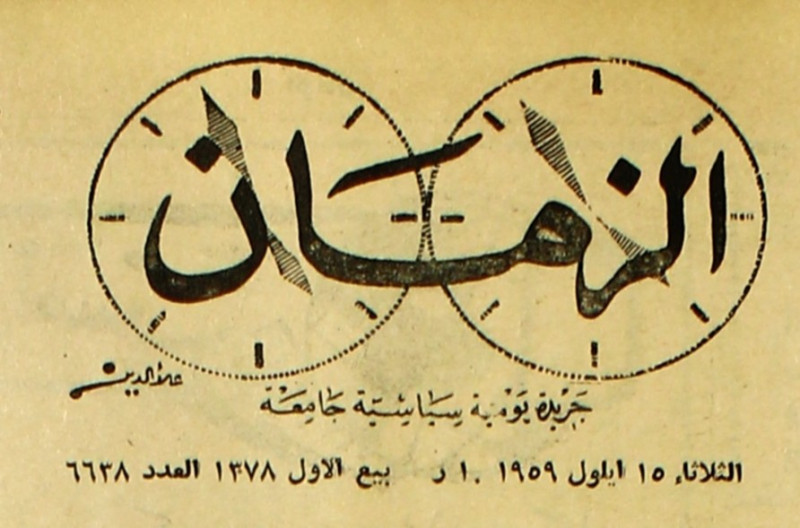 الزمان
علاء الدين
جريدة يومية سياسية جامعة
الثلاثاء ١٥ ايلول ١٩٥٩ ١٠ ر بيع الاول ١٣٧٨ العدد ٦٦٣٨